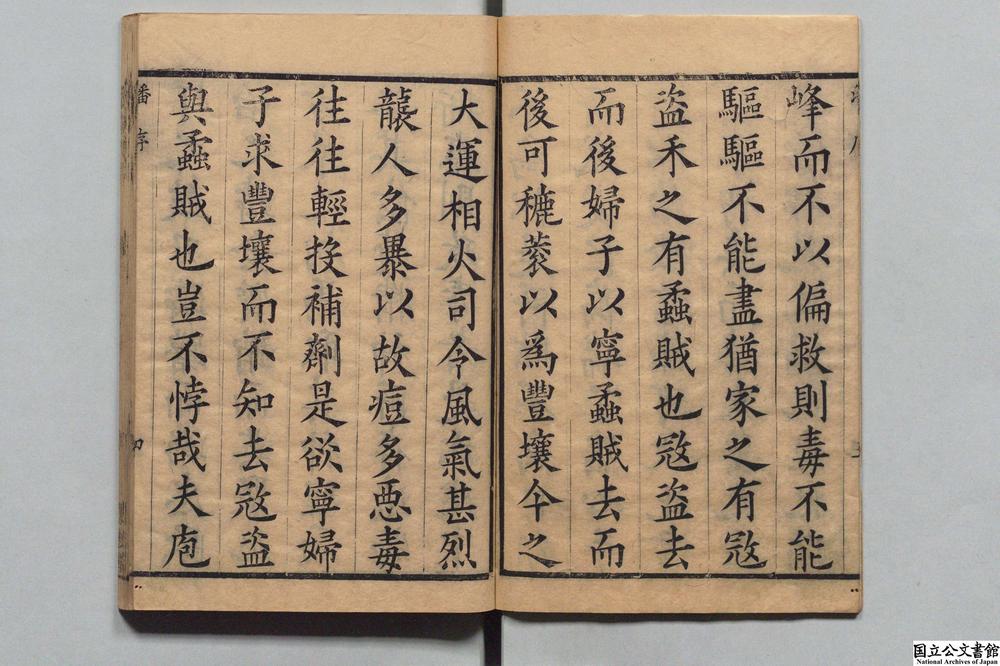 峰而不以偏救則毒不能
驅驅不能盡猶家之有寇
盜禾之有蟊賊也寇盜去
而後婦子以寧蟊賊去而
後可穮蔉以爲豐壤今之
大運相火司令風氣甚烈
襲人多暴以故痘多惡毒
往往輕投補劑是欲寧婦
子求豐壤而不知去寇盜
與蟊賊也豈不悖哉夫庖
潘序
四
国立公文書館
National Archives of Japan